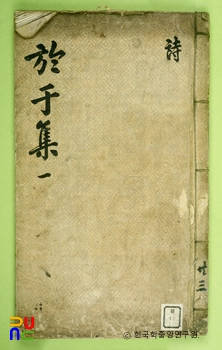 詩
於于集 一
卄三
© 한국학중앙연구원